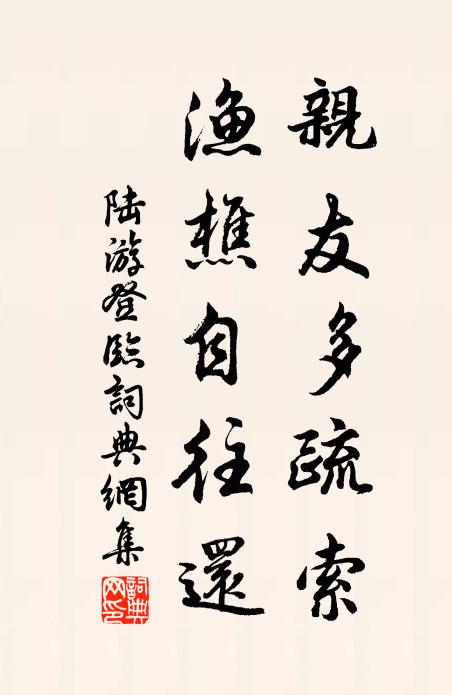 親友多疏索
漁樵自往還
陸游登臨詞典網集
詞典
网印